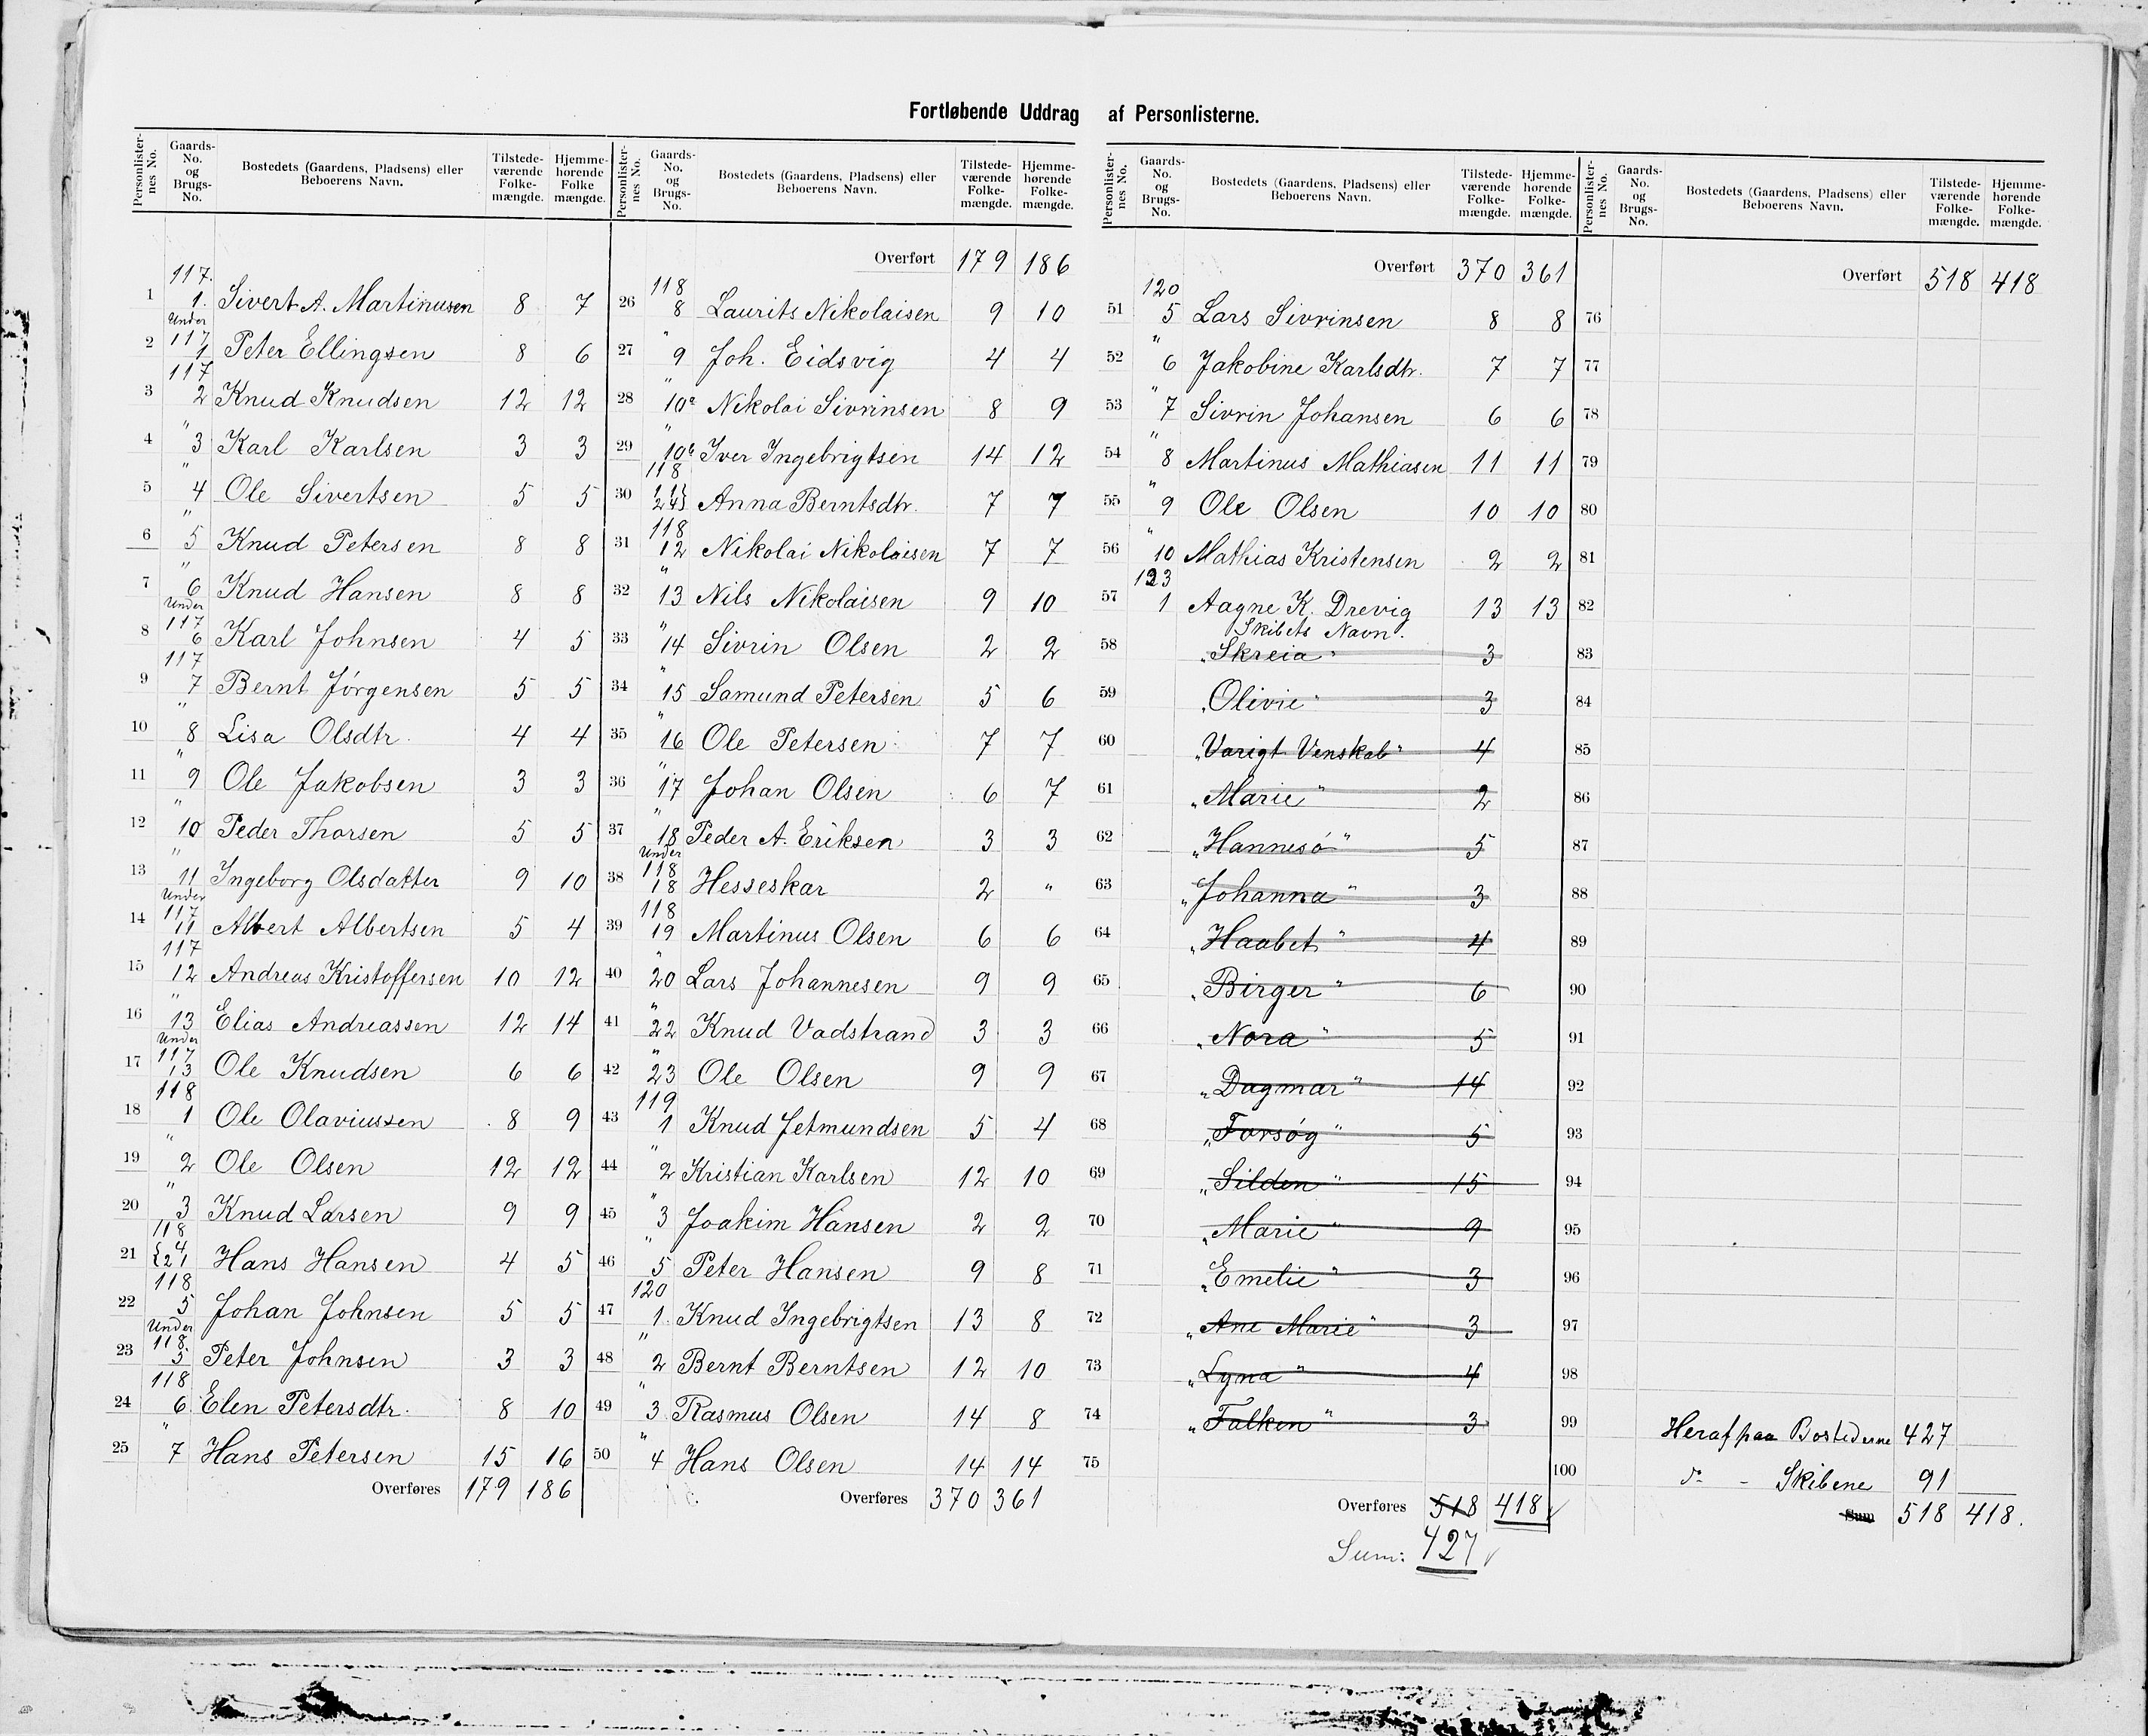 Fortløbende Uddrag af Personlisterne.
Personlisternes No. Gaards-No. og Brugs-No. Bostedets (Gaardens, Pladsens) eller Beboerens Navn. Tilstedeværende Folkemængde. Hjemmehørende Folkemængde.
117.
1 1. Sivert A. Martinusen 8 7
Under 117
2 1 Peter Ellingsen 8 6
117
3 2 Knud Knudsen 12 12
4 " 3 Karl Karlsen 3 3
5 " 4 Ole Sivertsen 5 5
6 " 5 Knud Petersen 8 8
7 " 6 Knud Hansen 8 8
Under 117
8 6 Karl Johnsen 4 5
117
9 7 Bernt Jørgensen 5 5
10 " 8 Lisa Olsdtr. 4 4
11 " 9 Ole Jakobsen 3 3
12 " 10 Peder Thorsen 5 5
13 " 11 Ingeborg Olsdatter 9 10
Under 117
14 11 Albert Albertsen 5 4
117
15 12 Andreas Kristoffersen 10 12
16 " 13 Elias Andreassen 12 14
Under 117
17 13 Ole Knudsen 6 6
118
18 1 Ole Olaviussen 8 9
19 " 2 Ole Olsen 12 12
20 " 3 Knud Larsen 9 9
118
21 { 4 21 Hans Hansen 4 5
118
22 5 Johan Johnsen 5 5
Under 118
23 5 Peter Johnsen 3 3
118
24 6 Elen Petersdtr. 8 10
25 " 7 Hans Petersen 15 16
Overføres 179 186
Personlisternes No. Gaards-No. og Brugs-No. Bostedets (Gaardens, Pladsens) eller Beboerens Navn. Tilstedeværende Folkemængde. Hjemmehørende Folkemængde.
Overført 179 186
118
26 8 Laurits Nikolaisen 9 10
27 " 9 Joh. Eidsvig 4 4
28 " 10a Nikolai Sivrinsen 8 9
29 " 10b Iver Ingebrigtsen 14 12
118
30 11 24} Anna Berntsdtr. 7 7
118
31 12 Nikolai Nikolaisen 7 7
32 " 13 Nils Nikolaisen 9 10
33 " 14 Sivrin Olsen 2 2
34 " 15 Samund Petersen 5 6
35 " 16 Ole Petersen 7 7
36 " 17 Johan Olsen 6 7
37 " 18 Peder A. Eriksen 3 3
Under 118
38 18 Hesseskar 2 "
118
39 19 Martinus Olsen 6 6
40 " 20 Lars Johannesen 9 9
41 " 22 Knud Vadstrand 3 3
42 " 23 Ole Olsen 9 9
119
43 1 Knud Jetmundsen 5 4
44 " 2 Kristian Karlsen 12 10
45 " 3 Joakim Hansen 2 2
46 " 5 Peter Hansen 9 8
120
47 1. Knud Ingebrigtsen 13 8
48 " 2 Bernt Berntsen 12 10
49 " 3 Rasmus Olsen 14 8
50 " 4 Hans Olsen 14 14
Overføres 370 361
Personlisternes No. Gaards-No. og Brugs-No. Bostedets (Gaardens, Pladsens) eller Beboerens Navn. Tilstedeværende Folkemængde. Hjemmehørende Folkemængde.
Overført 370 361
120
51 5 Lars Sivrinsen 8 8
52 " 6 Jakobine Karlsdtr. 7 7
53 " 7 Sivrin Johansen 6 6
54 " 8 Martinus Mathiasen 11 11
55 " 9 Ole Olsen 10 10
56 " 10 Mathias Kristensen 2 2
123
57 1 Aagne K. Drevig 13 13
Skibets Navn.
58 "Skreia" 3
59 "Olivie" 3
60 "Varigt Venskab" 4
61 "Marie" 2
62 "Hannesø" 5
63 "Johanna" 3
64 "Haabet" 4
65 "Birger" 6
66 "Nora" 5
67 "Dagmar" 14
68 "Forsøg" 5
69 "Silden" 15
70 "Marie" 9
71 "Emelie" 3
72 "Ane Marie" 3
73 "Lyna" 4
74 "Falken" 3
75
Overføres 518 418
Sum: 427
Personlisternes No. Gaards-No. og Brugs-No. Bostedets (Gaardens, Pladsens) eller Beboerens Navn. Tilstedeværende Folkemængde. Hjemmehørende Folkemængde.
Overført 518 418
76
77
78
79
80
81
82
83
84
85
86
87
88
89
90
91
92
93
94
95
96
97
98
99 Heraf paa Bostederne 427
100 do - Skibene 91
Sum 518 418.